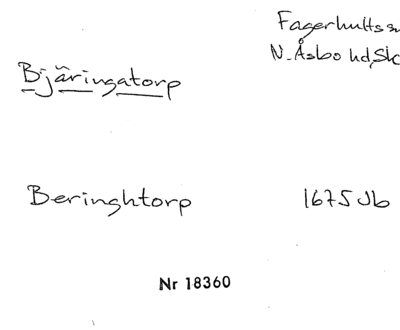 Fagerhults
N. Åsbo hd, Sk
Bjäringatorp
Beringhtorp 1675 Jb
Nr 18360